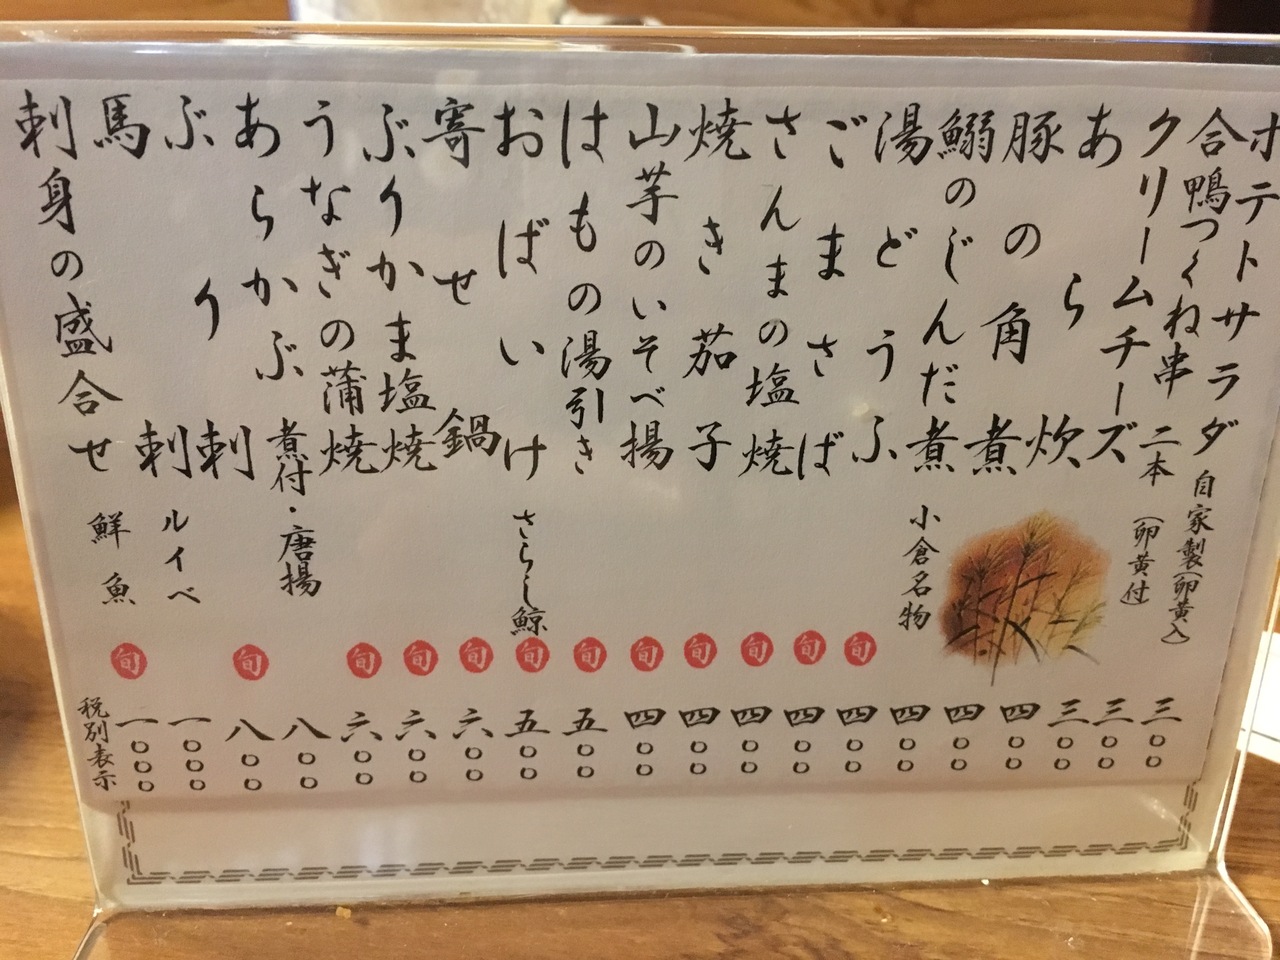 ポテトサラダ 自家製(卵黄入) 三〇〇
合鴨つくね串 二本 (卵黄付) 三〇〇
クリームチーズ 三〇〇
あら炊 四〇〇
豚の角煮 四〇〇
鰯のじんだ煮 小倉名物 四〇〇
湯どうふ 旬 四〇〇
ごまさば 旬 四〇〇
さんまの塩焼 旬 四〇〇
焼き茄子 旬 四〇〇
山芋のいそべ揚 旬 四〇〇
はもの湯引き 旬 五〇〇
おばいけ さらし鯨 旬 五〇〇
寄せ鍋 旬 六〇〇
ぶりかま塩焼 旬 六〇〇
うなぎの蒲焼 旬 六〇〇
あらかぶ 煮付・唐揚 八〇〇
ぶり刺 旬 八〇〇
馬刺 ルイベ 一〇〇〇
刺身の盛合せ 鮮魚 旬 一〇〇〇
税別表示